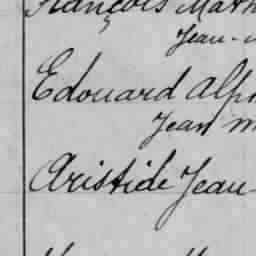 François Math
Jean-
Edouard Alph
Jean M
Aristide Jean-